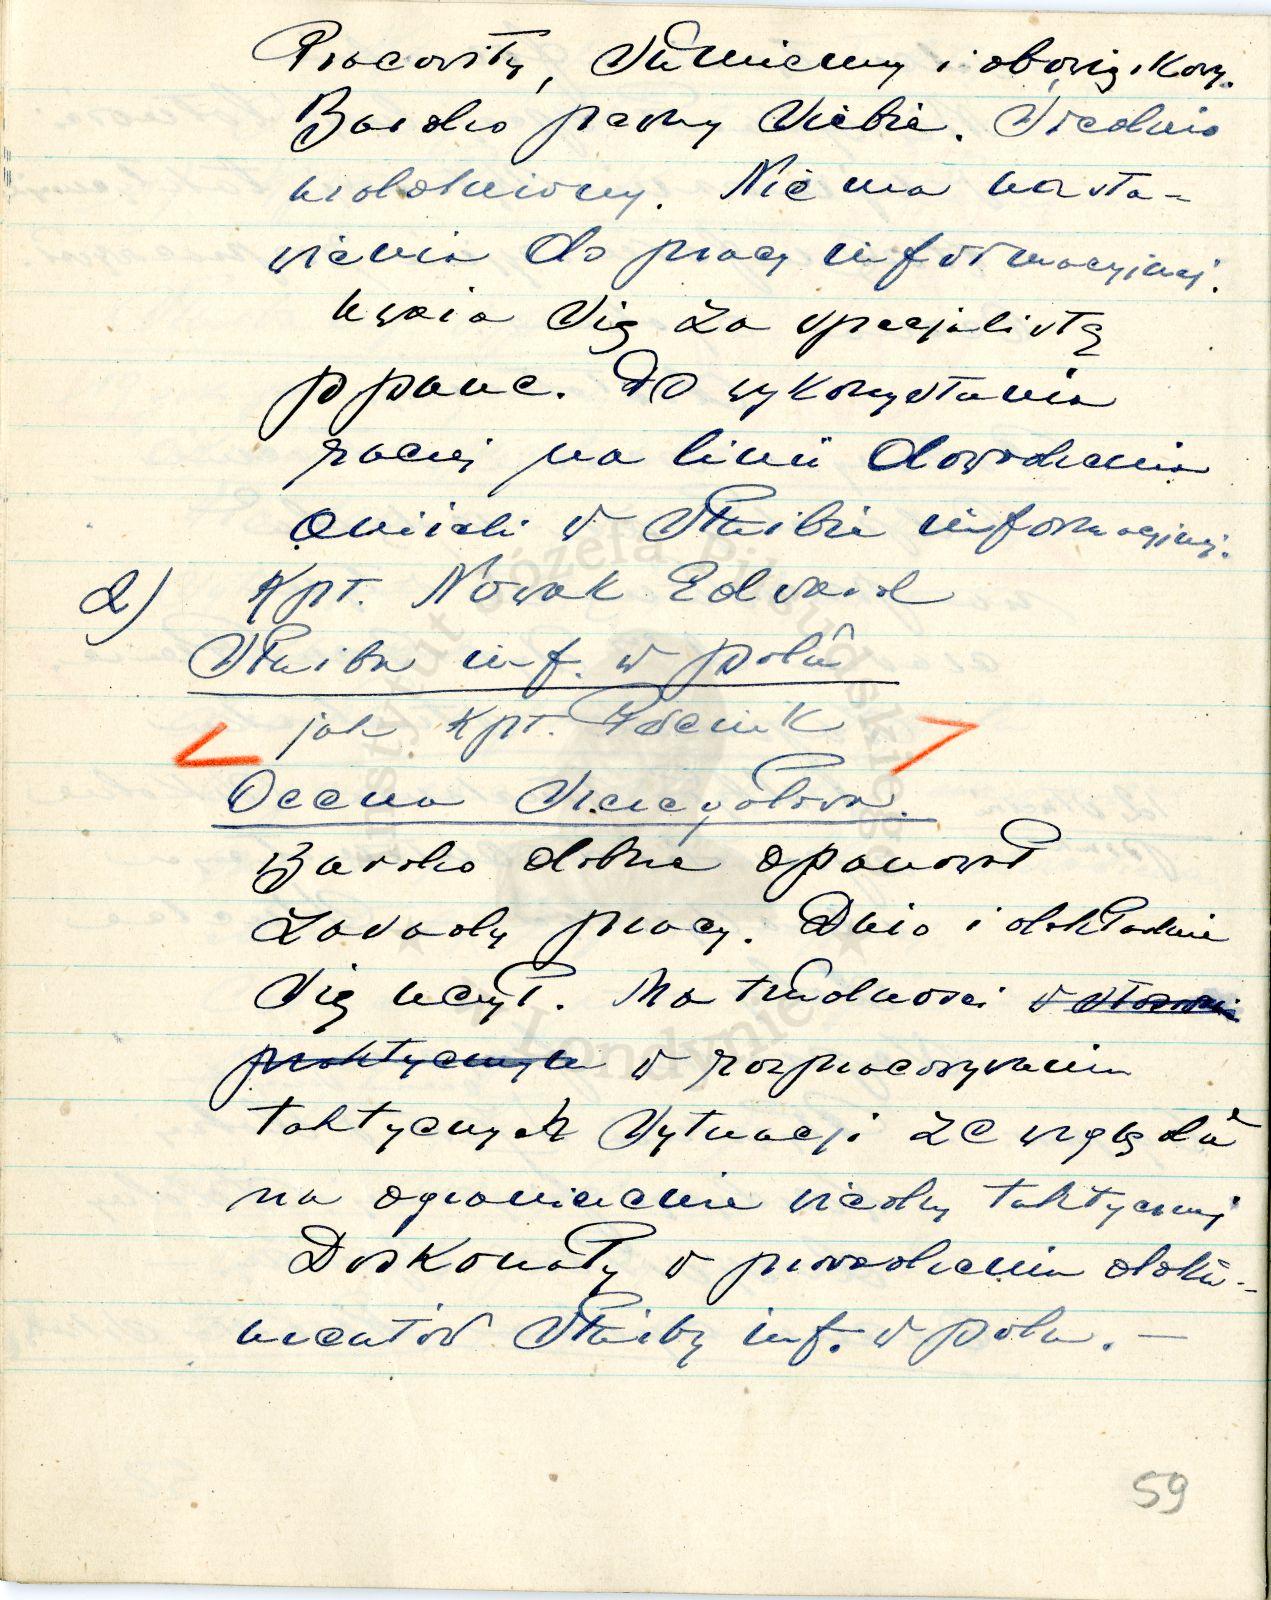 Pracowity, sumienny i obowiązkowy.
Bardzo pewny siebie. Średnio
uzdolniony. Nie ma nasta-
wienia do pracy informacyjnej.
Uważa się za specjalistę
ppanc. Do wykorzystania
raczej na linii dowodzenia
aniżeli w służbie informacyjnej.
2) Kpt. Nowak Edward
Służba inf. w polu
jak kpt.
Ocena szczegółowa.
Bardzo dobrze opanował
zasady pracy. Dużo i dokładnie
się uczył. Ma trudności w
praktycznych w rozpracowywaniu
taktycznych sytuacji ze względu
na ograniczenie wiedzy taktycznej
Doskonały w prowadzeniu doku-
mentów służby inf. w polu. —
59
Instytut Józefa Piłsudskiego w Londynie